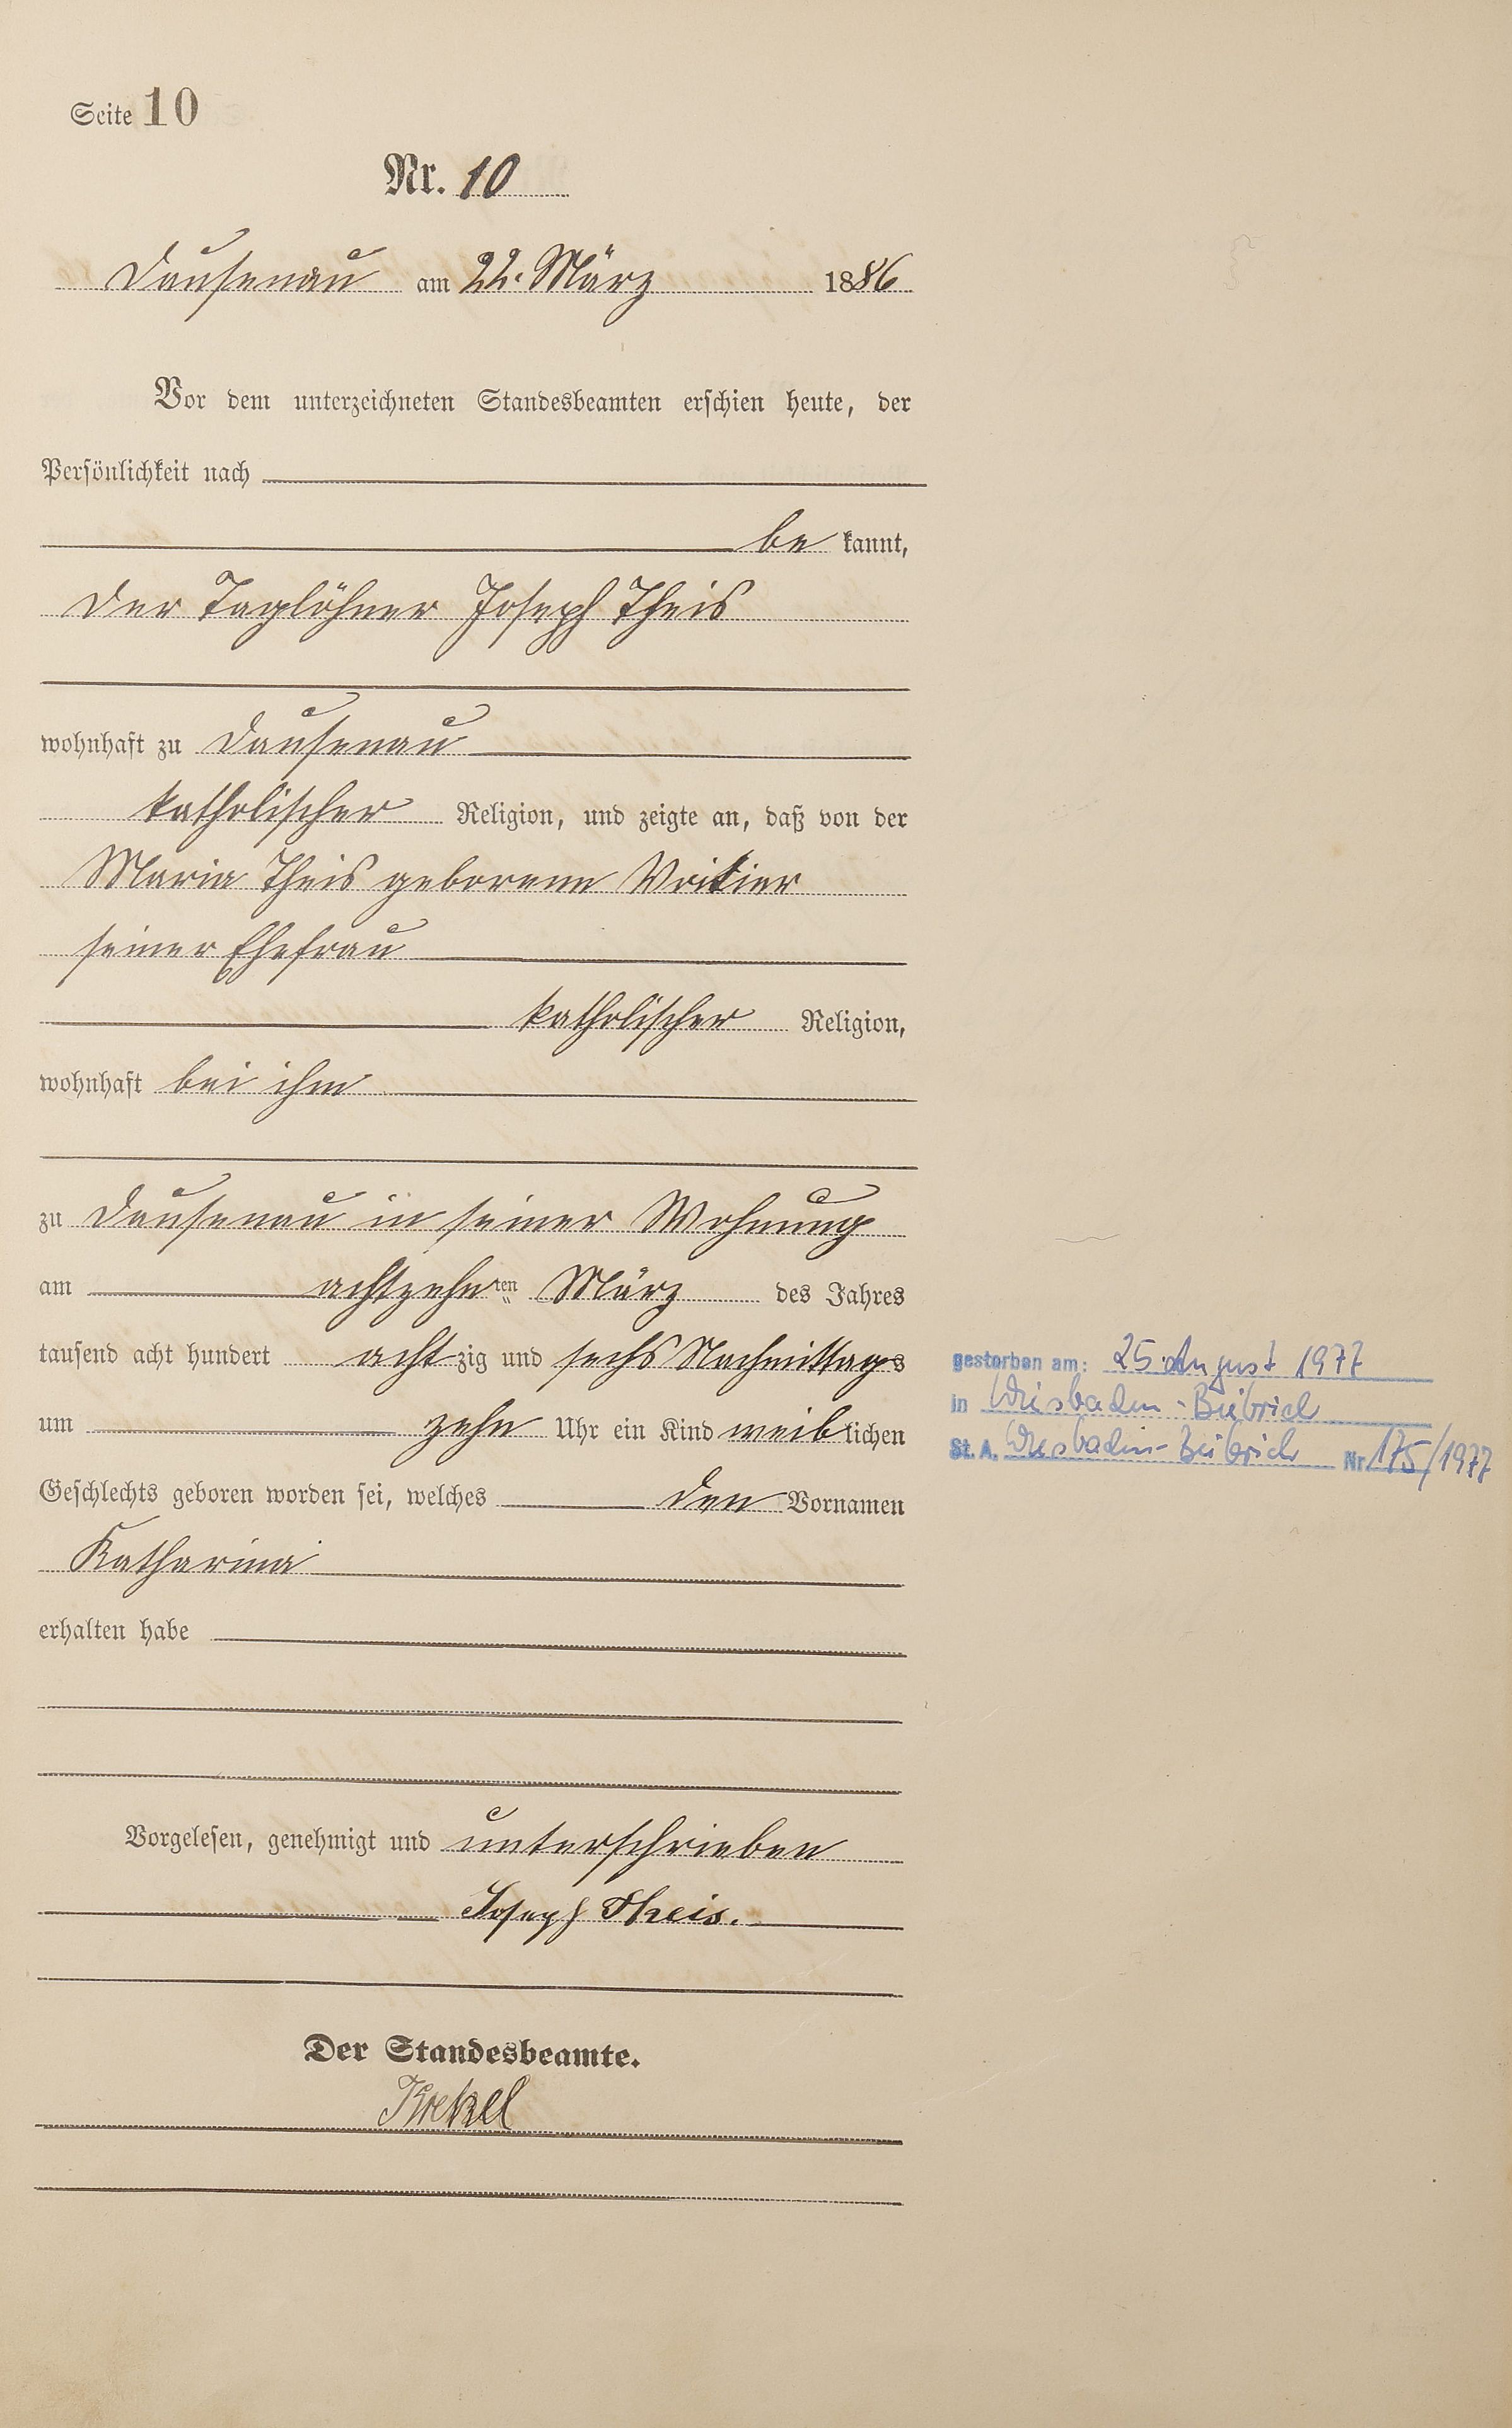 Seite 10
Nr. 10
Dausenau am 22. März 1886
Vor dem unterzeichneten Standesbeamten erschien heute, der
Persönlichkeit nach
be kannt,
der Taglöhner Joseph Theis
wohnhaft zu Dausenau
katholischer Religion, und zeigte an, daß von der
Maria Theis geborene
seiner Ehefrau
katholischer Religion,
wohnhaft bei ihm
zu Dausenau in seiner Wohnung
am achtzehnten März des Jahres
tausend acht hundert achtzig und sechs Nachmittags
um zehn Uhr ein Kind weiblichen
Geschlechts geboren worden sei, welches den Vornamen
Katharina
erhalten habe
Vorgelesen, genehmigt und unterschrieben
Joseph Theis.
Der Standesbeamte.
Krekel
gestorben am: 25. August 1977
in Wiesbaden-Biebrich
St. A. Wiesbaden-Biebrich Nr 175/1977